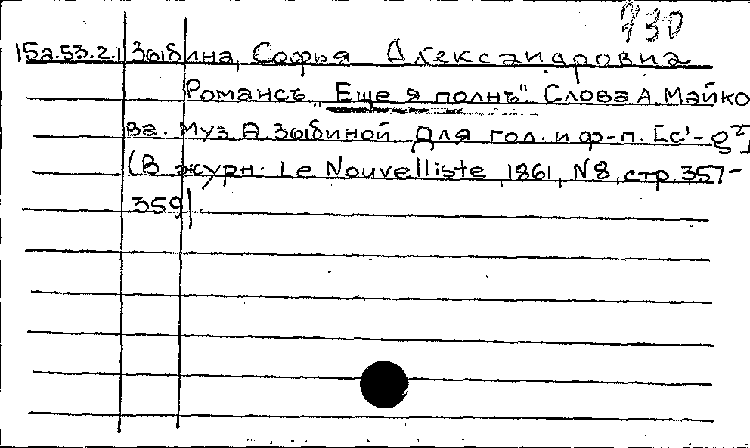 730
15a.53.2.1 Зыбина, Софья Александровна
Романсъ „Еще я полнъ". Слова А. Майко
ва. Муз. В. Зыбиной. Для гол. и ф-п. [c¹-g²]
(В журн. Le Nouvelliste, 1861, N8, стр. 357-
359)